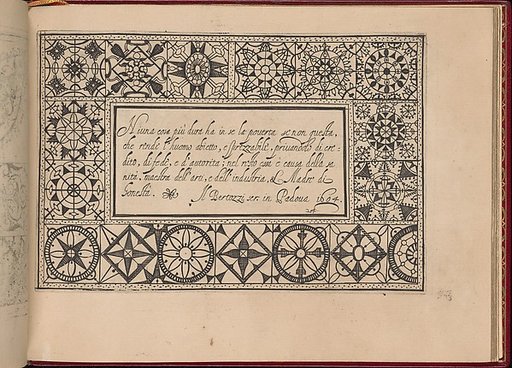 Niuna cosa più dura ha in se la povertà se non questa,
che rende l'huomo abietto, e sprezzabile, privandolo di cre=
dito, di fede, e d'autorità; nel resto è causa della sa
nità, maestra dell'arti, e dell'industria, & Madre di
honestà. M Bertozzi scr. in Padoua 1604.